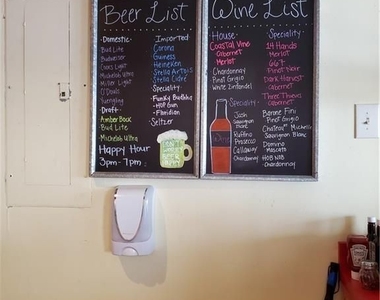 Beer List
-Domestic-
Bud Lite
Budweiser
Coors Light
Michelob Ultra
Miller Light
O'Douls
Yuengling
-Draft-
Amber Bock
Bud Lite
Michelob Ultra
Happy Hour
3pm-7pm
Imported
Corona
Guiness
Heineken
Stella Artois
Stella Cidre
Speciality
-Funky Buddha
-Hop Gun
-Floridian
-Seltzer
Wine List
House-
Coastal Vine
Cabernet
Merlot
Chardonnay
Pinot Grigio
White Zinfandel
Speciality-
14 Hands
Merlot
667
Pinot Noir
Dark Harvest
Cabernet
Three Thieves
Cabernet
Speciality-
Josh
Sauvignon
Blanc
Ruffino
Prosecco
Callaway
Chardonnay
Barone Fini
Pinot Grigio
Chateau St Michelle
Sauvignon Blanc
Domino
Moscato
Hob Nob
Chardonnay